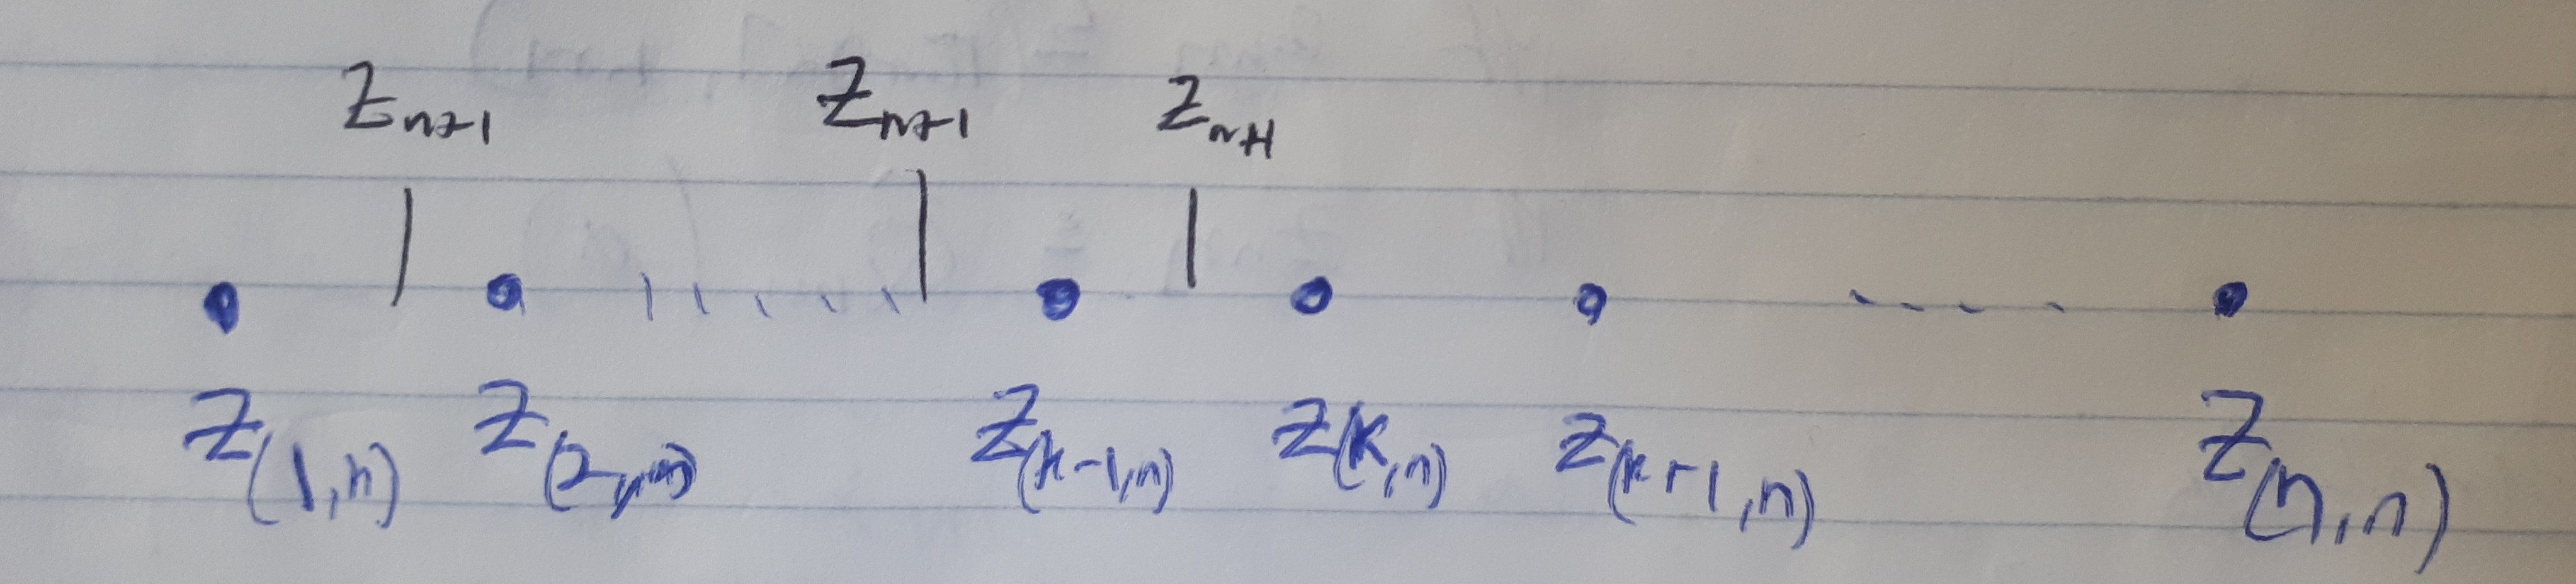 Z_{n+1} Z_{n+1} Z_{n+1}
Z_{(1,n)} Z_{(2,n)} Z_{(k-1,n)} Z_{(k,n)} Z_{(k+1,n)} Z_{(n,n)}